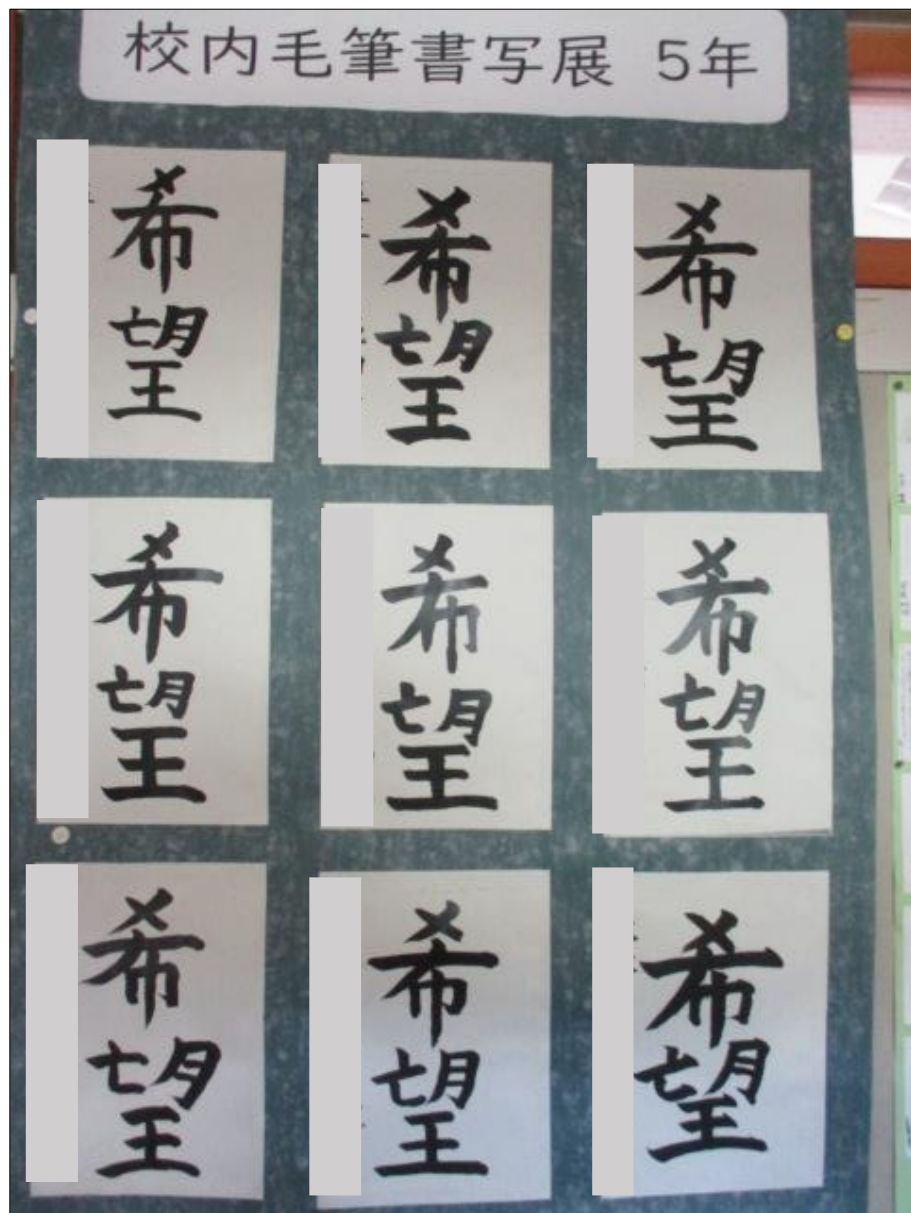 校内毛筆書写展 5年
希望
希望
希望
希望
希望
希望
希望
希望
希望